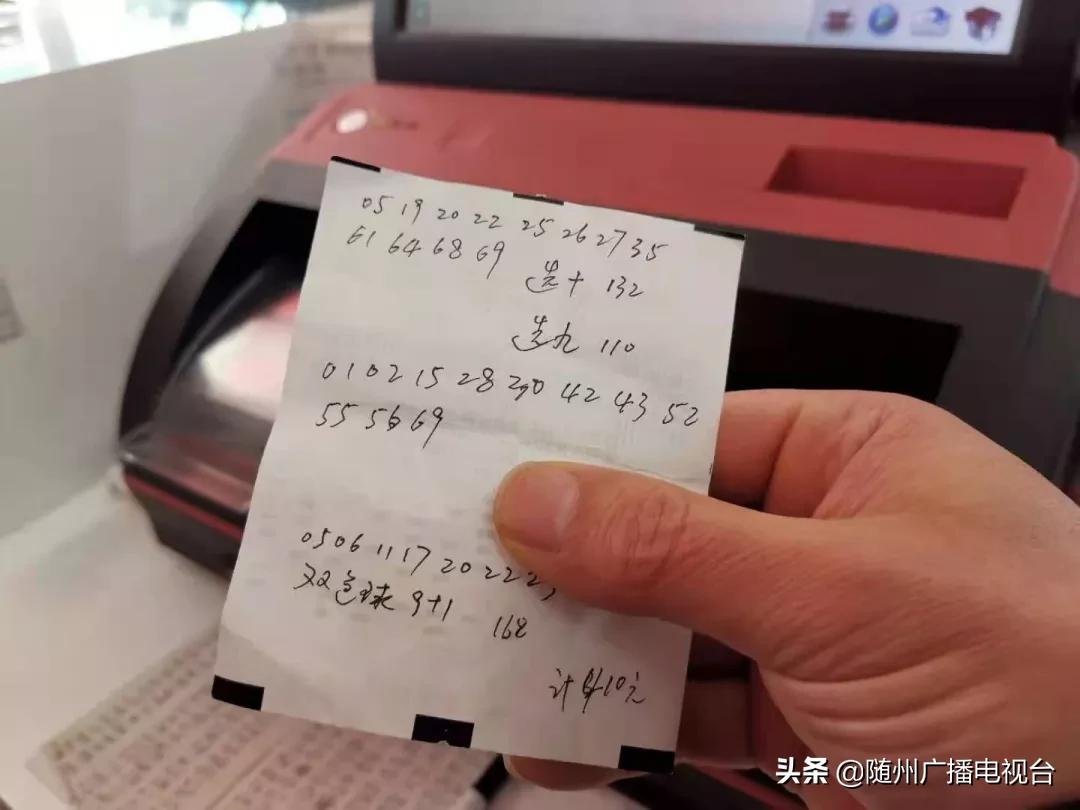 05 19 20 22 25 26 27 35
61 64 68 69 选十 132
选九 110
01 02 15 28 30 42 43 52
55 56 69
05 06 11 17 20 22 2
双色球 9+1 168
计410元
头条 @随州广播电视台